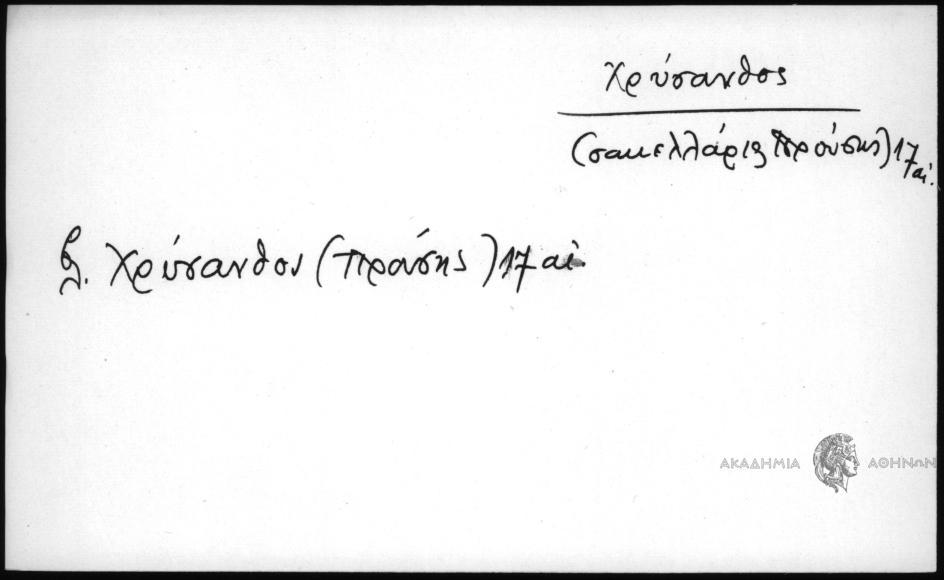 Χρύσανθος
(σακελλάριος Προύσης) 17 αἰ.
βλ. Χρύσανθον (Προύσης) 17 αἰ.
ΑΚΑΔΗΜΙΑ ΑΘΗΝΩΝ